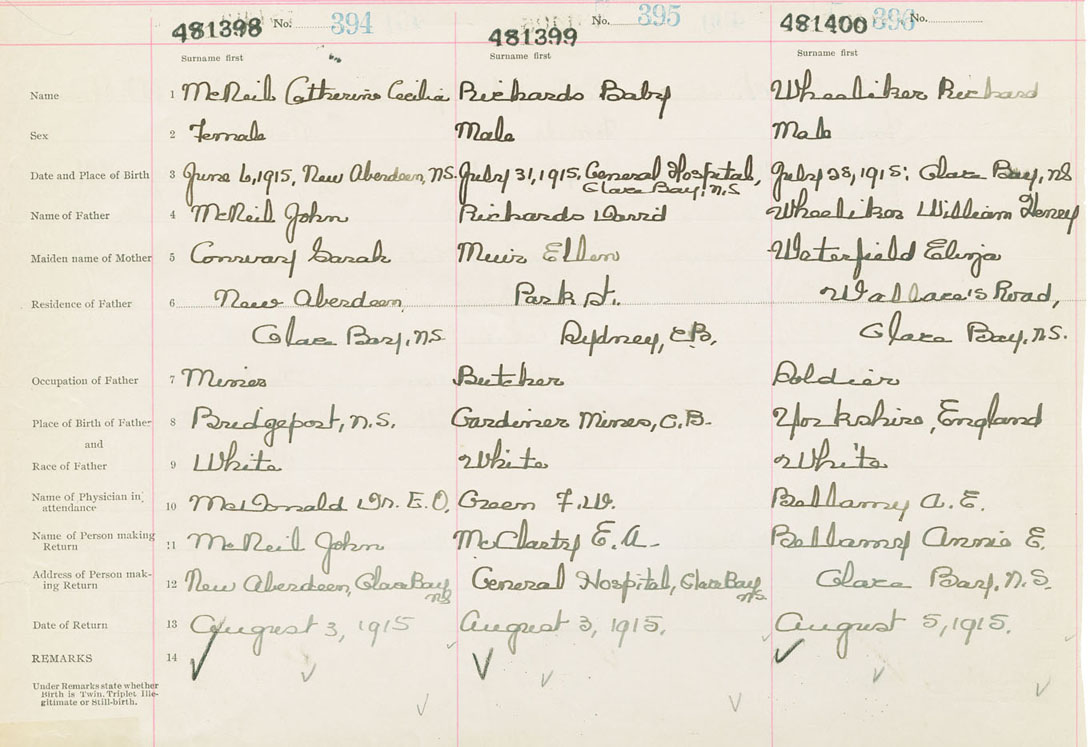 481398 No. 394 481399 No. 395 481400 396 No.
Surname first Surname first Surname first
Name 1 McNeil Catherine Cecilia Richards Baby Wheeliker Richard
Sex 2 Female Male Male
Date and Place of Birth 3 June 6, 1915, New Aberdeen, N.S. July 31, 1915, General Hospital, July 28, 1915; Glace Bay, N.S
Glace Bay, N.S
Name of Father 4 McNeil John Richards David Wheeliker William Henry
Maiden name of Mother 5 Conway Sarah Muir Ellen Waterfield Eliza
Residence of Father 6 New Aberdeen, Park St. Wallace's Road,
Glace Bay, N.S. Sydney, C.B, Glace Bay, N.S.
Occupation of Father 7 Miner Butcher Soldier
Place of Birth of Father 8 Bridgeport, N.S. Gardiner Mines, C.B. Yorkshire, England
and
Race of Father 9 White White White
Name of Physician in attendance 10 McDonald Dr. E.O. Green F.W. Bellamy A. E.
Name of Person making Return 11 McNeil John E. A. Bellamy Annie E.
Address of Person making Return 12 New Aberdeen, Glace Bay N.S General Hospital, Glace Bay N.S. Glace Bay, N.S.
Date of Return 13 August 3, 1915 August 3, 1915. August 5, 1915.
REMARKS 14
Under Remarks state whether
Birth is Twin, Triplet Ille-
gitimate or Still-birth.